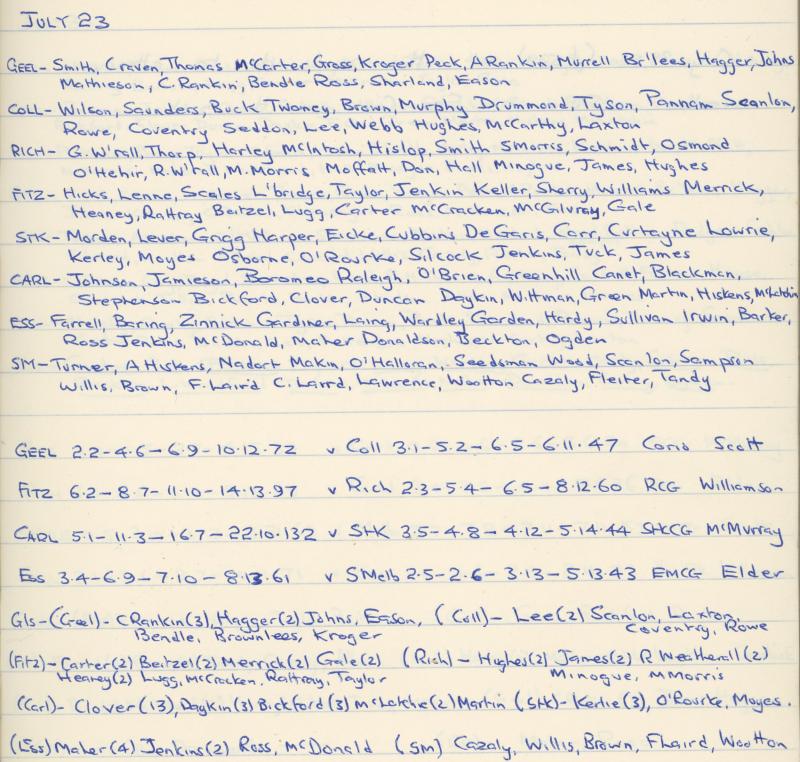 JULY 23
GEEL- Smith, Craven, Thomas McCarter, Gross, Kroger Peck, A Rankin, Murrell Br'lees, Hagger, Johns
Mathieson, C. Rankin, Bendle Ross, Sharland, Eason
COLL- Wilson, Saunders, Buck Twomey, Brown, Murphy Drummond, Tyson, Pannam Scanlon,
Rowe, Coventry Seddon, Lee, Webb Hughes, McCarthy, Laxton
RICH- G.W'rall, Thorp, Harley McIntosh, Hislop, Smith SMorris, Schmidt, Osmond
O'Hehir, R.W'rall, M.Morris Moffatt, Don, Hall Minogue, James, Hughes
FITZ- Hicks, Lenne, Scales L'bridge, Taylor, Jenkin Keller, Sherry, Williams Merrick,
Heaney, Rattray Beitzel, Lugg, Carter McCracken, McGilvray, Gale
STK- Morden, Lever, Grigg Harper, Eicke, Cubbins DeGaris, Carr, Curtayne Lowrie,
Kerley, Moyes Osborne, O'Rourke, Silcock Jenkins, Tuck, James
CARL- Johnson, Jamieson, Boromeo Raleigh, O'Brien, Greenhill Canet, Blackman,
Stephenson Bickford, Clover, Duncan Daykin, Wittman, Green Martin, Hiskens,
ESS- Farrell, Baring, Zinnick Gardiner, Laing, Wardley Gorden, Hardy, Sullivan Irwin, Barker,
Ross Jenkins, McDonald, Maher Donaldson, Beckton, Ogden
SM- Turner, A Hiskens, Nadort Makin, O'Halloran, Seedsman Wood, Scanlon, Sampson
Willis, Brown, F. Laird C. Laird, Lawrence, Wootton Cazaly, Fleiter, Tandy
GEEL 2.2-4.6-6.9-10.12.72 v Coll 3.1-5.2-6.5-6.11.47 Corio Scott
FITZ 6.2-8.7-11.10-14.13.97 v Rich 2.3-5.4-6.5-8.12.60 RCG Williamson
CARL 5.1-11.3-16.7-22.10.132 v STK 3.5-4.8-4.12-5.14.44 StKCG McMurray
ESS 3.4-6.9-7.10-8.13.61 v SMelb 2.5-2.6-3.13-5.13.43 EMCG Elder
Gls-(Geel)- CRankin(3), Hagger(2) Johns, Eason, (Coll)- Lee(2) Scanlon, Laxton,
Bendle, Brownlees, Kroger Coventry, Rowe
(Fitz)- Carter(2) Beitzel(2) Merrick(2) Gale(2) (Rich)- Hughes(2) James(2) R Weatherall(2)
Heaney(2) Lugg, McCracken, Rattray, Taylor Minogue, MMorris
(Carl)- Clover(13), Daykin(3) Bickford(3) McLatchie(2) Martin (StK)- Kerlie(3), O'Rourke, Moyes.
(Ess) Maher(4) Jenkins(2) Ross, McDonald (SM) Cazaly, Willis, Brown, FLaird, Wootton